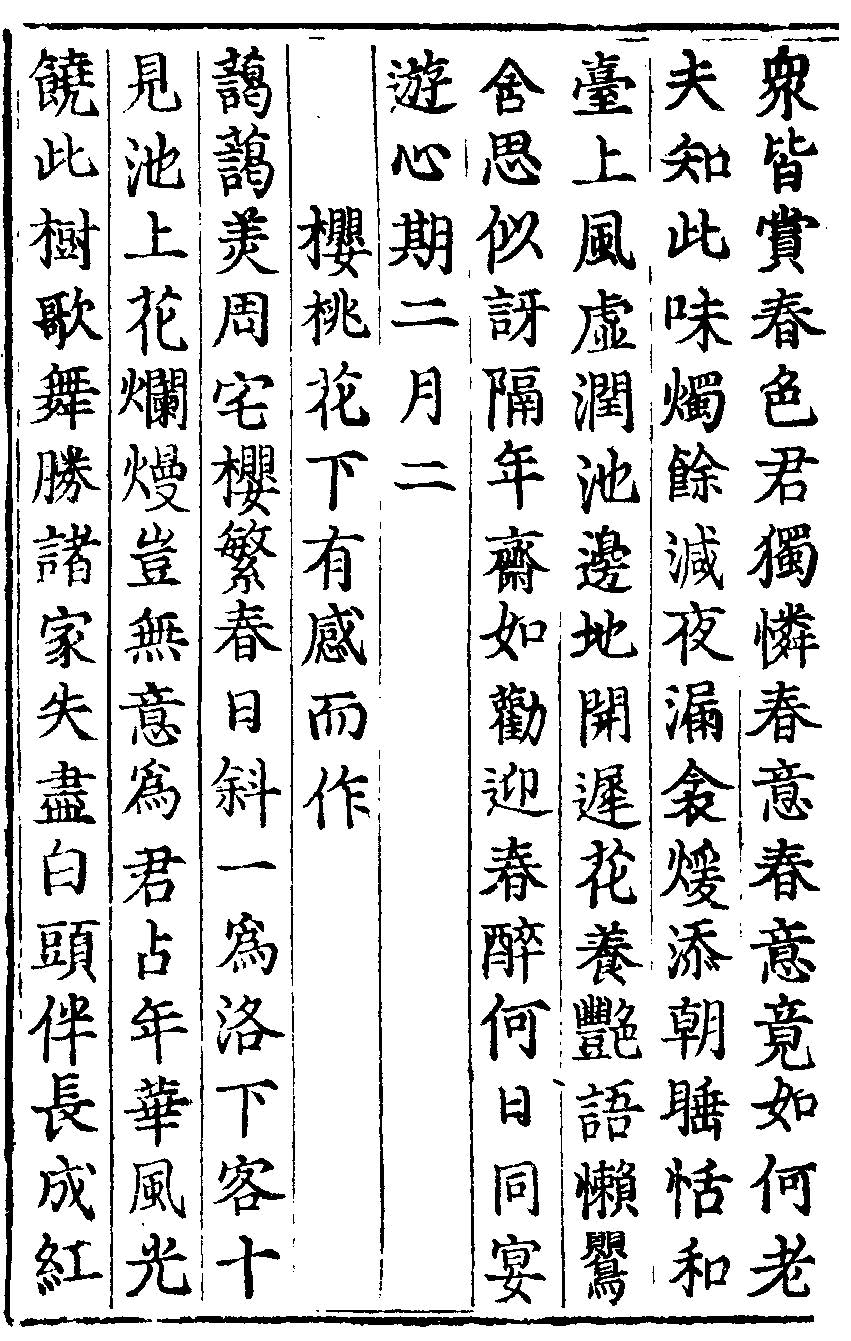 衆皆賞春色君獨憐春意春意竟如何老
夫知此味燭餘減夜漏衾煖添朝睡恬和
臺上風虛潤池邊地開遲花養艷語懶鸎
含思似訝隔年齋如勸迎春醉何日同宴
遊心期二月二
櫻桃花下有感而作
藹藹羙周宅櫻繁春日斜一爲洛下客十
見池上花爛熳豈無意爲君占年華風光
饒此樹歌舞勝諸家失盡白頭伴長成紅